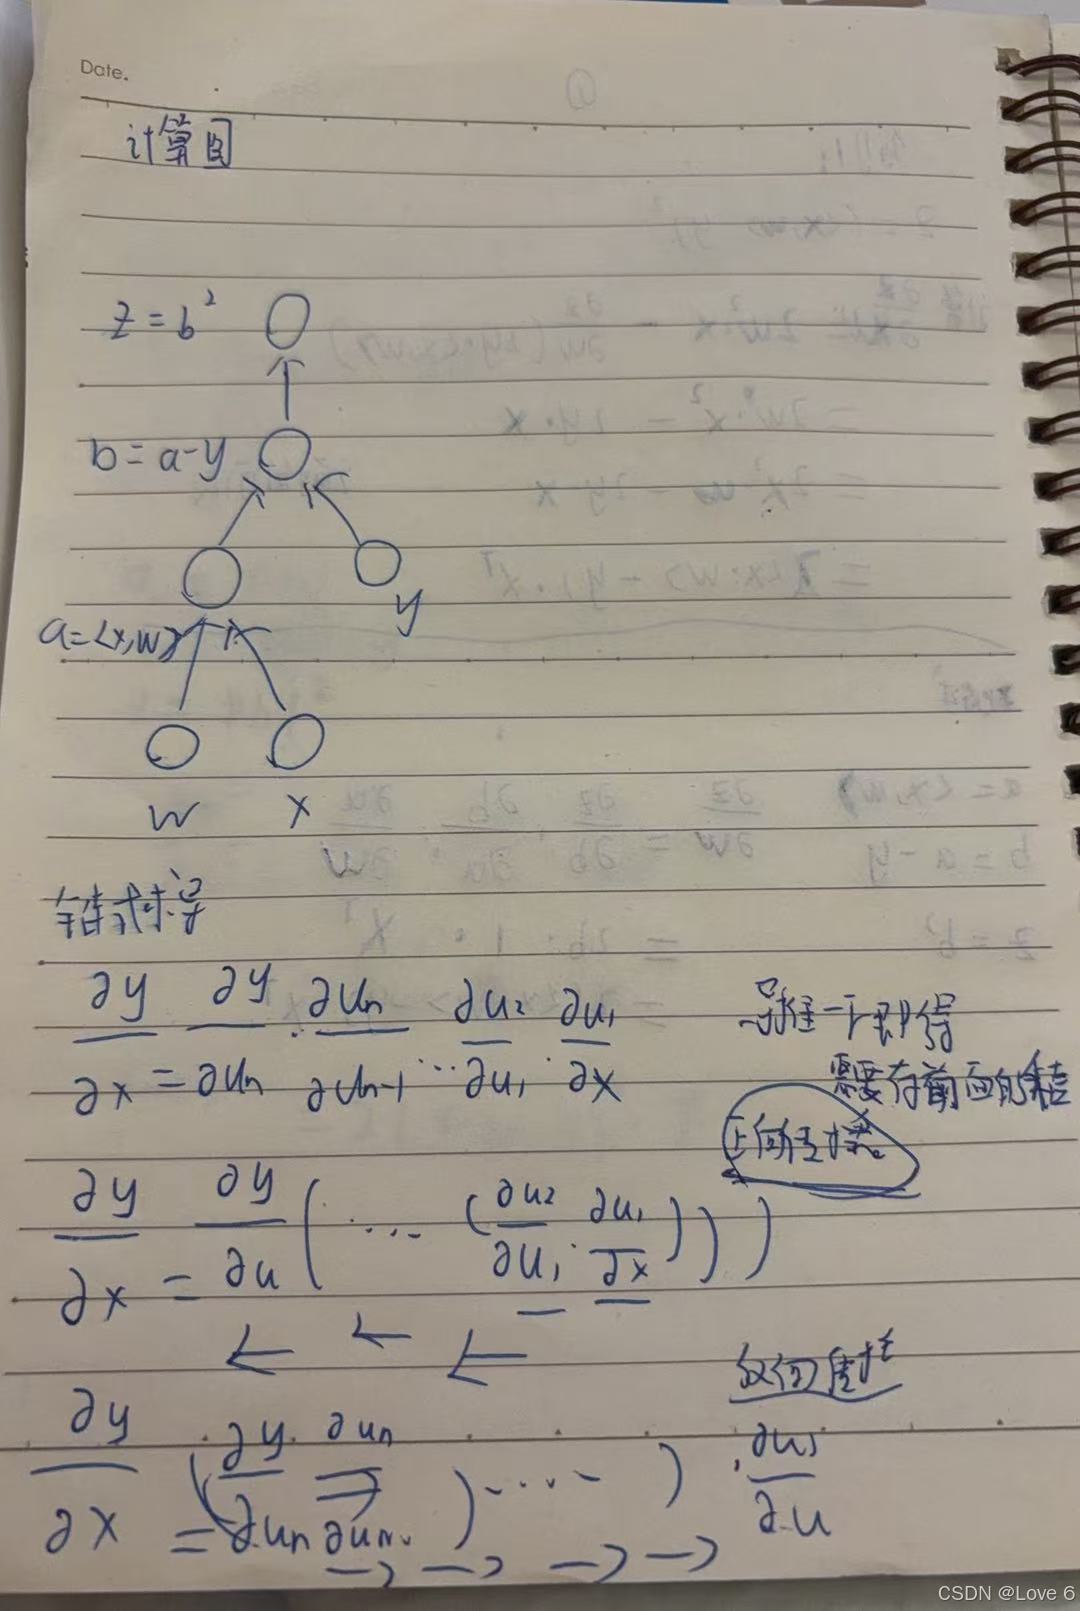 Date.
计算图
z = b²
b = a - y
y
a = <x, w>
w x
链式求导
∂y/∂x = ∂y/∂un · ∂un/∂un-1 ... ∂u2/∂u1 · ∂u1/∂x
需要存前面的
正向
∂y/∂x = ∂y/∂u ( ... ( ∂u2/∂u1 · ∂u1/∂x ) ) )
← ← ←
∂y/∂x = ( ∂y/∂un ∂un/∂un-1 ) .... ) · /∂u
→ → → →
CSDN @Love 6